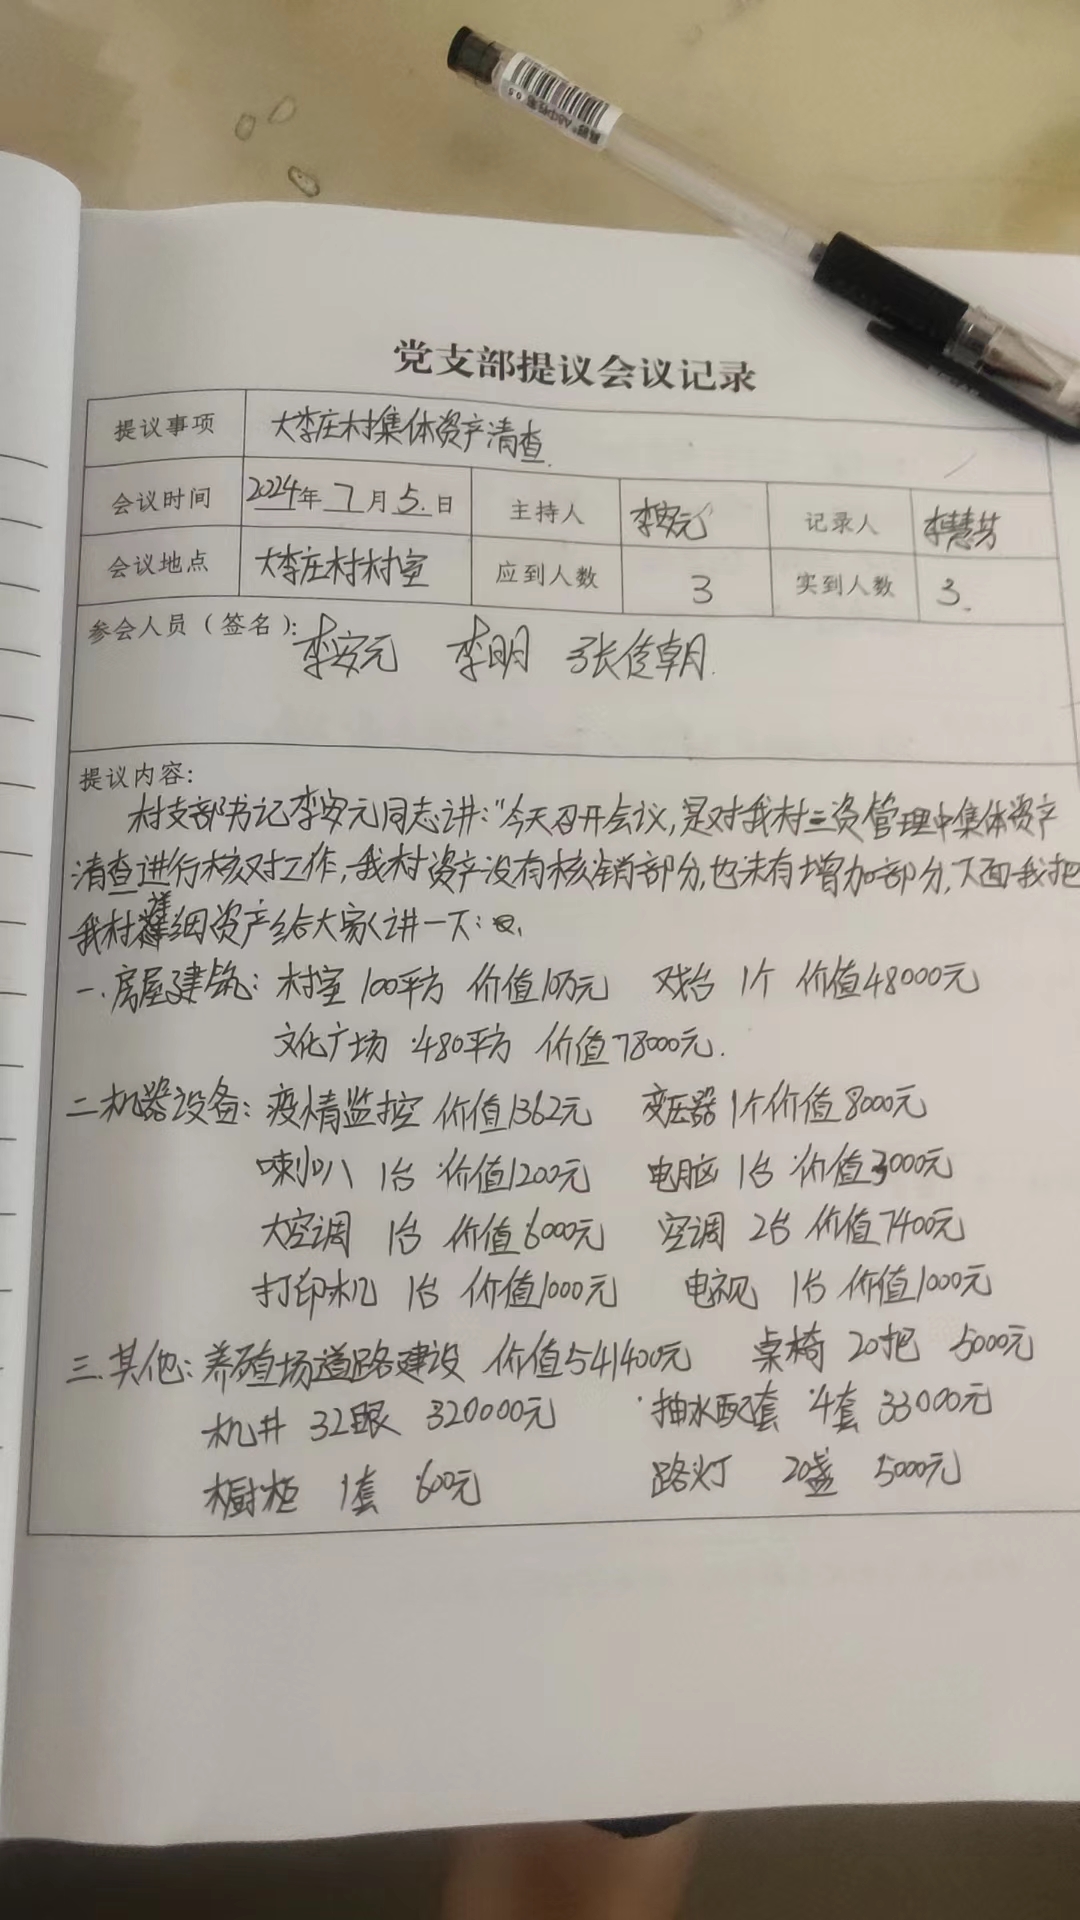 党支部提议会议记录
提议事项 大李庄村集体资产清查.
会议时间 2024年 7月 5.日 主持人 李安元 记录人 李慧芬
会议地点 大李庄村村室 应到人数 3 实到人数 3.
参会人员（签名）: 李安元 李明 张传朝.
提议内容:
村支部书记李安元同志讲:"今天召开会议,是对我村三资管理中集体资产
清查进行核对工作,我村资产没有核销部分,也未有增加部分,下面我把
我村详细资产给大家讲一下:
一.房屋建筑: 村室 100平方 价值10万元 戏台 1个 价值48000元
文化广场 480平方 价值78000元.
二机器设备: 疫情监控 价值1362元 变压器 1个价值8000元
喇叭 1台 价值1200元 电脑 1台 价值3000元
大空调 1台 价值6000元 空调 2台 价值7400元
打印机 1台 价值1000元 电视 1台 价值1000元
三.其他: 养殖场道路建设 价值541400元 桌椅 20把 5000元
机井 32眼 320000元 抽水配套 4套 33000元
橱柜 1套 600元 路灯 20盏 5000元